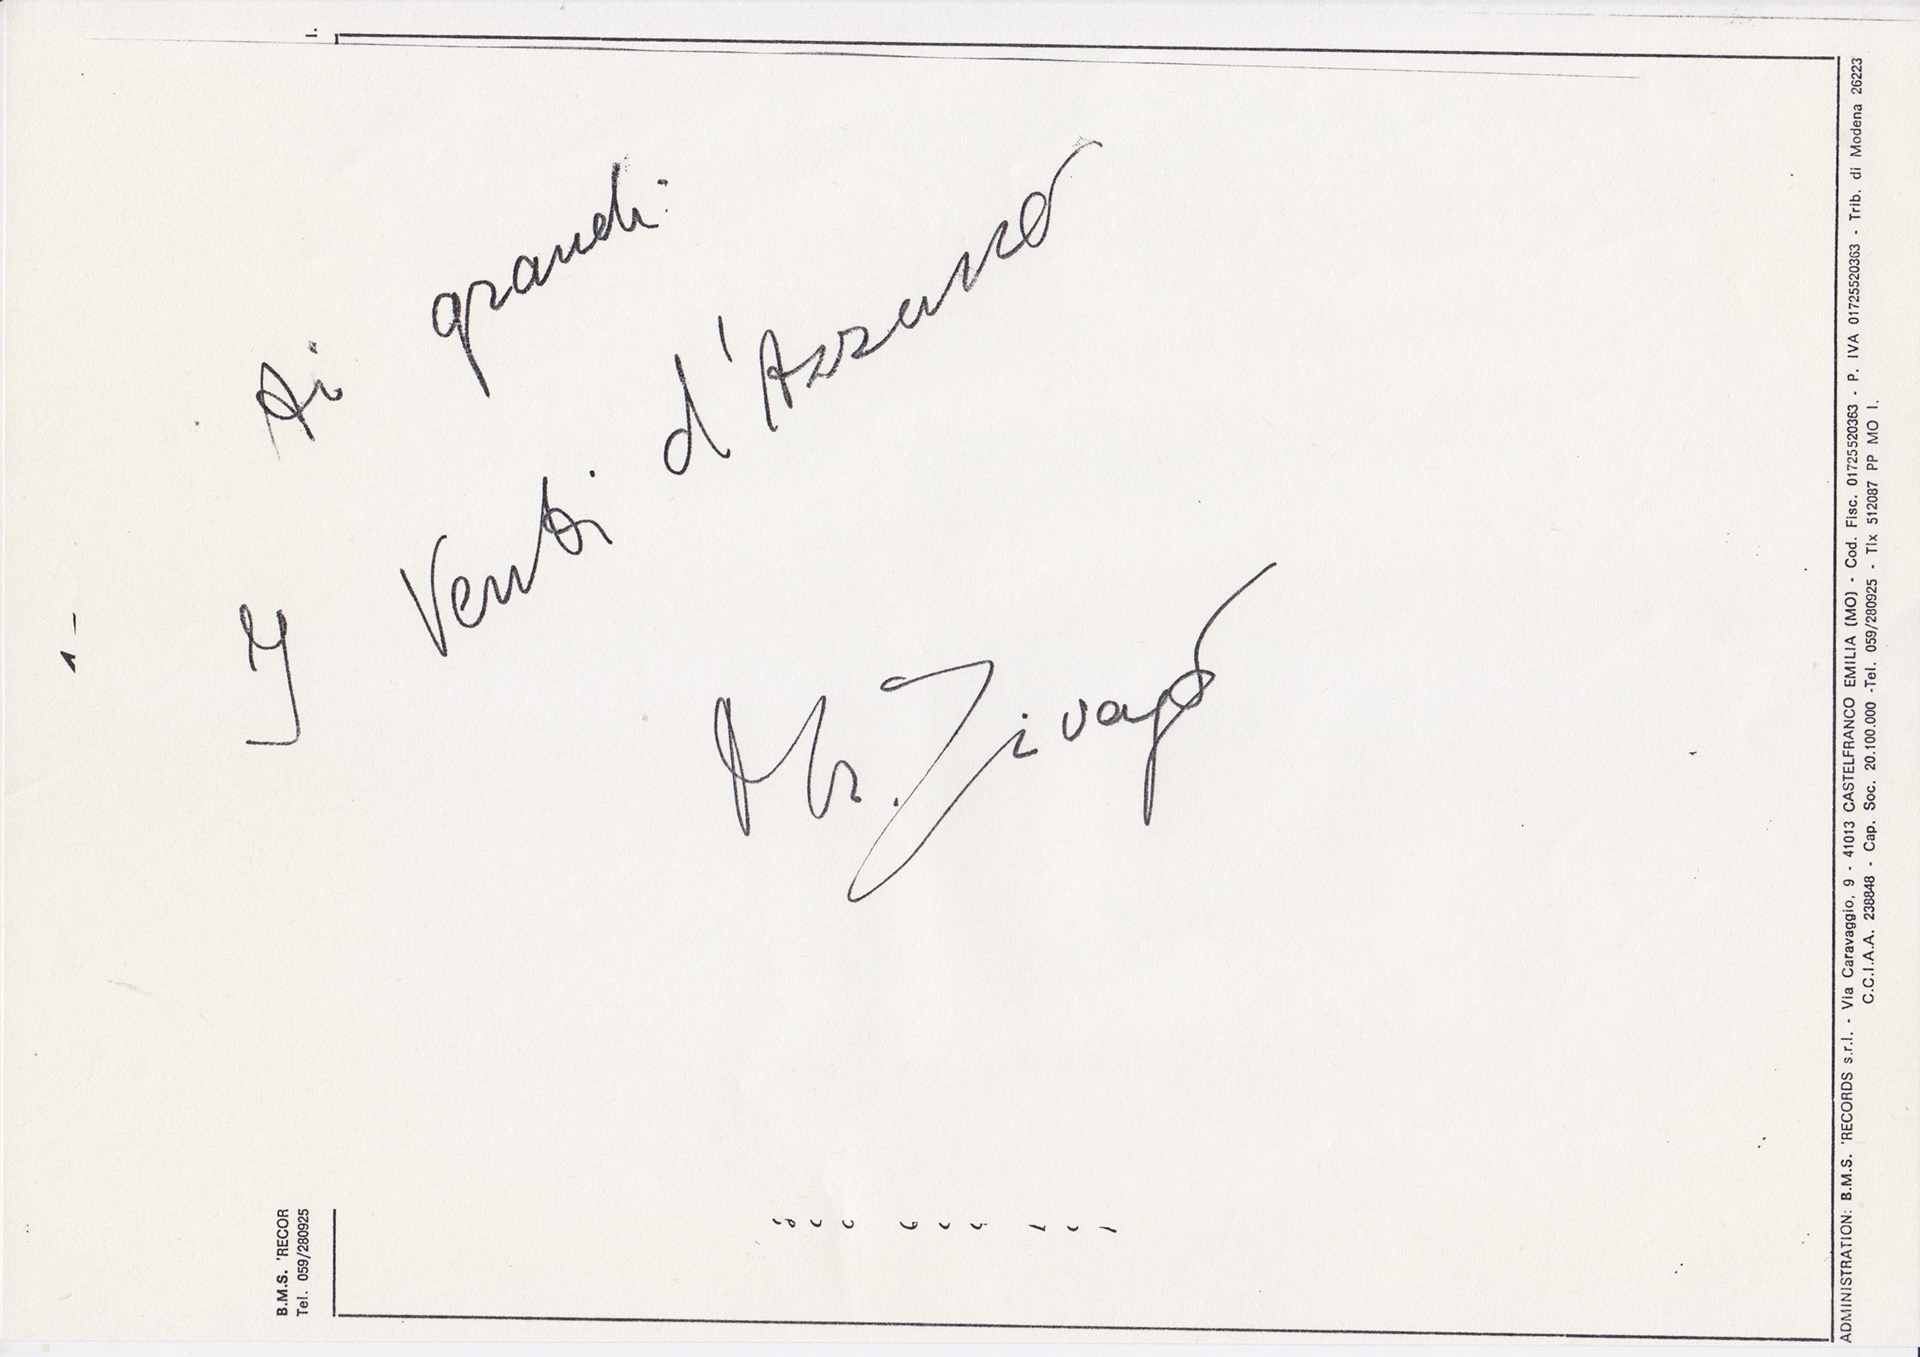 Ai grandi:
I Venti d'Azzurro
Mr. Zivago
B.M.S. 'RECOR
Tel. 059/280925
I.
ADMINISTRATION: B.M.S. 'RECORDS s.r.l. - Via Caravaggio, 9 - 41013 CASTELFRANCO EMILIA (MO) - Cod. Fisc. 01725520363 - P. IVA 01725520363 - Trib. di Modena 26223
C.C.I.A.A. 238848 - Cap. Soc. 20.100.000 -Tel. 059/280925 - Tlx 512087 PP MO I.